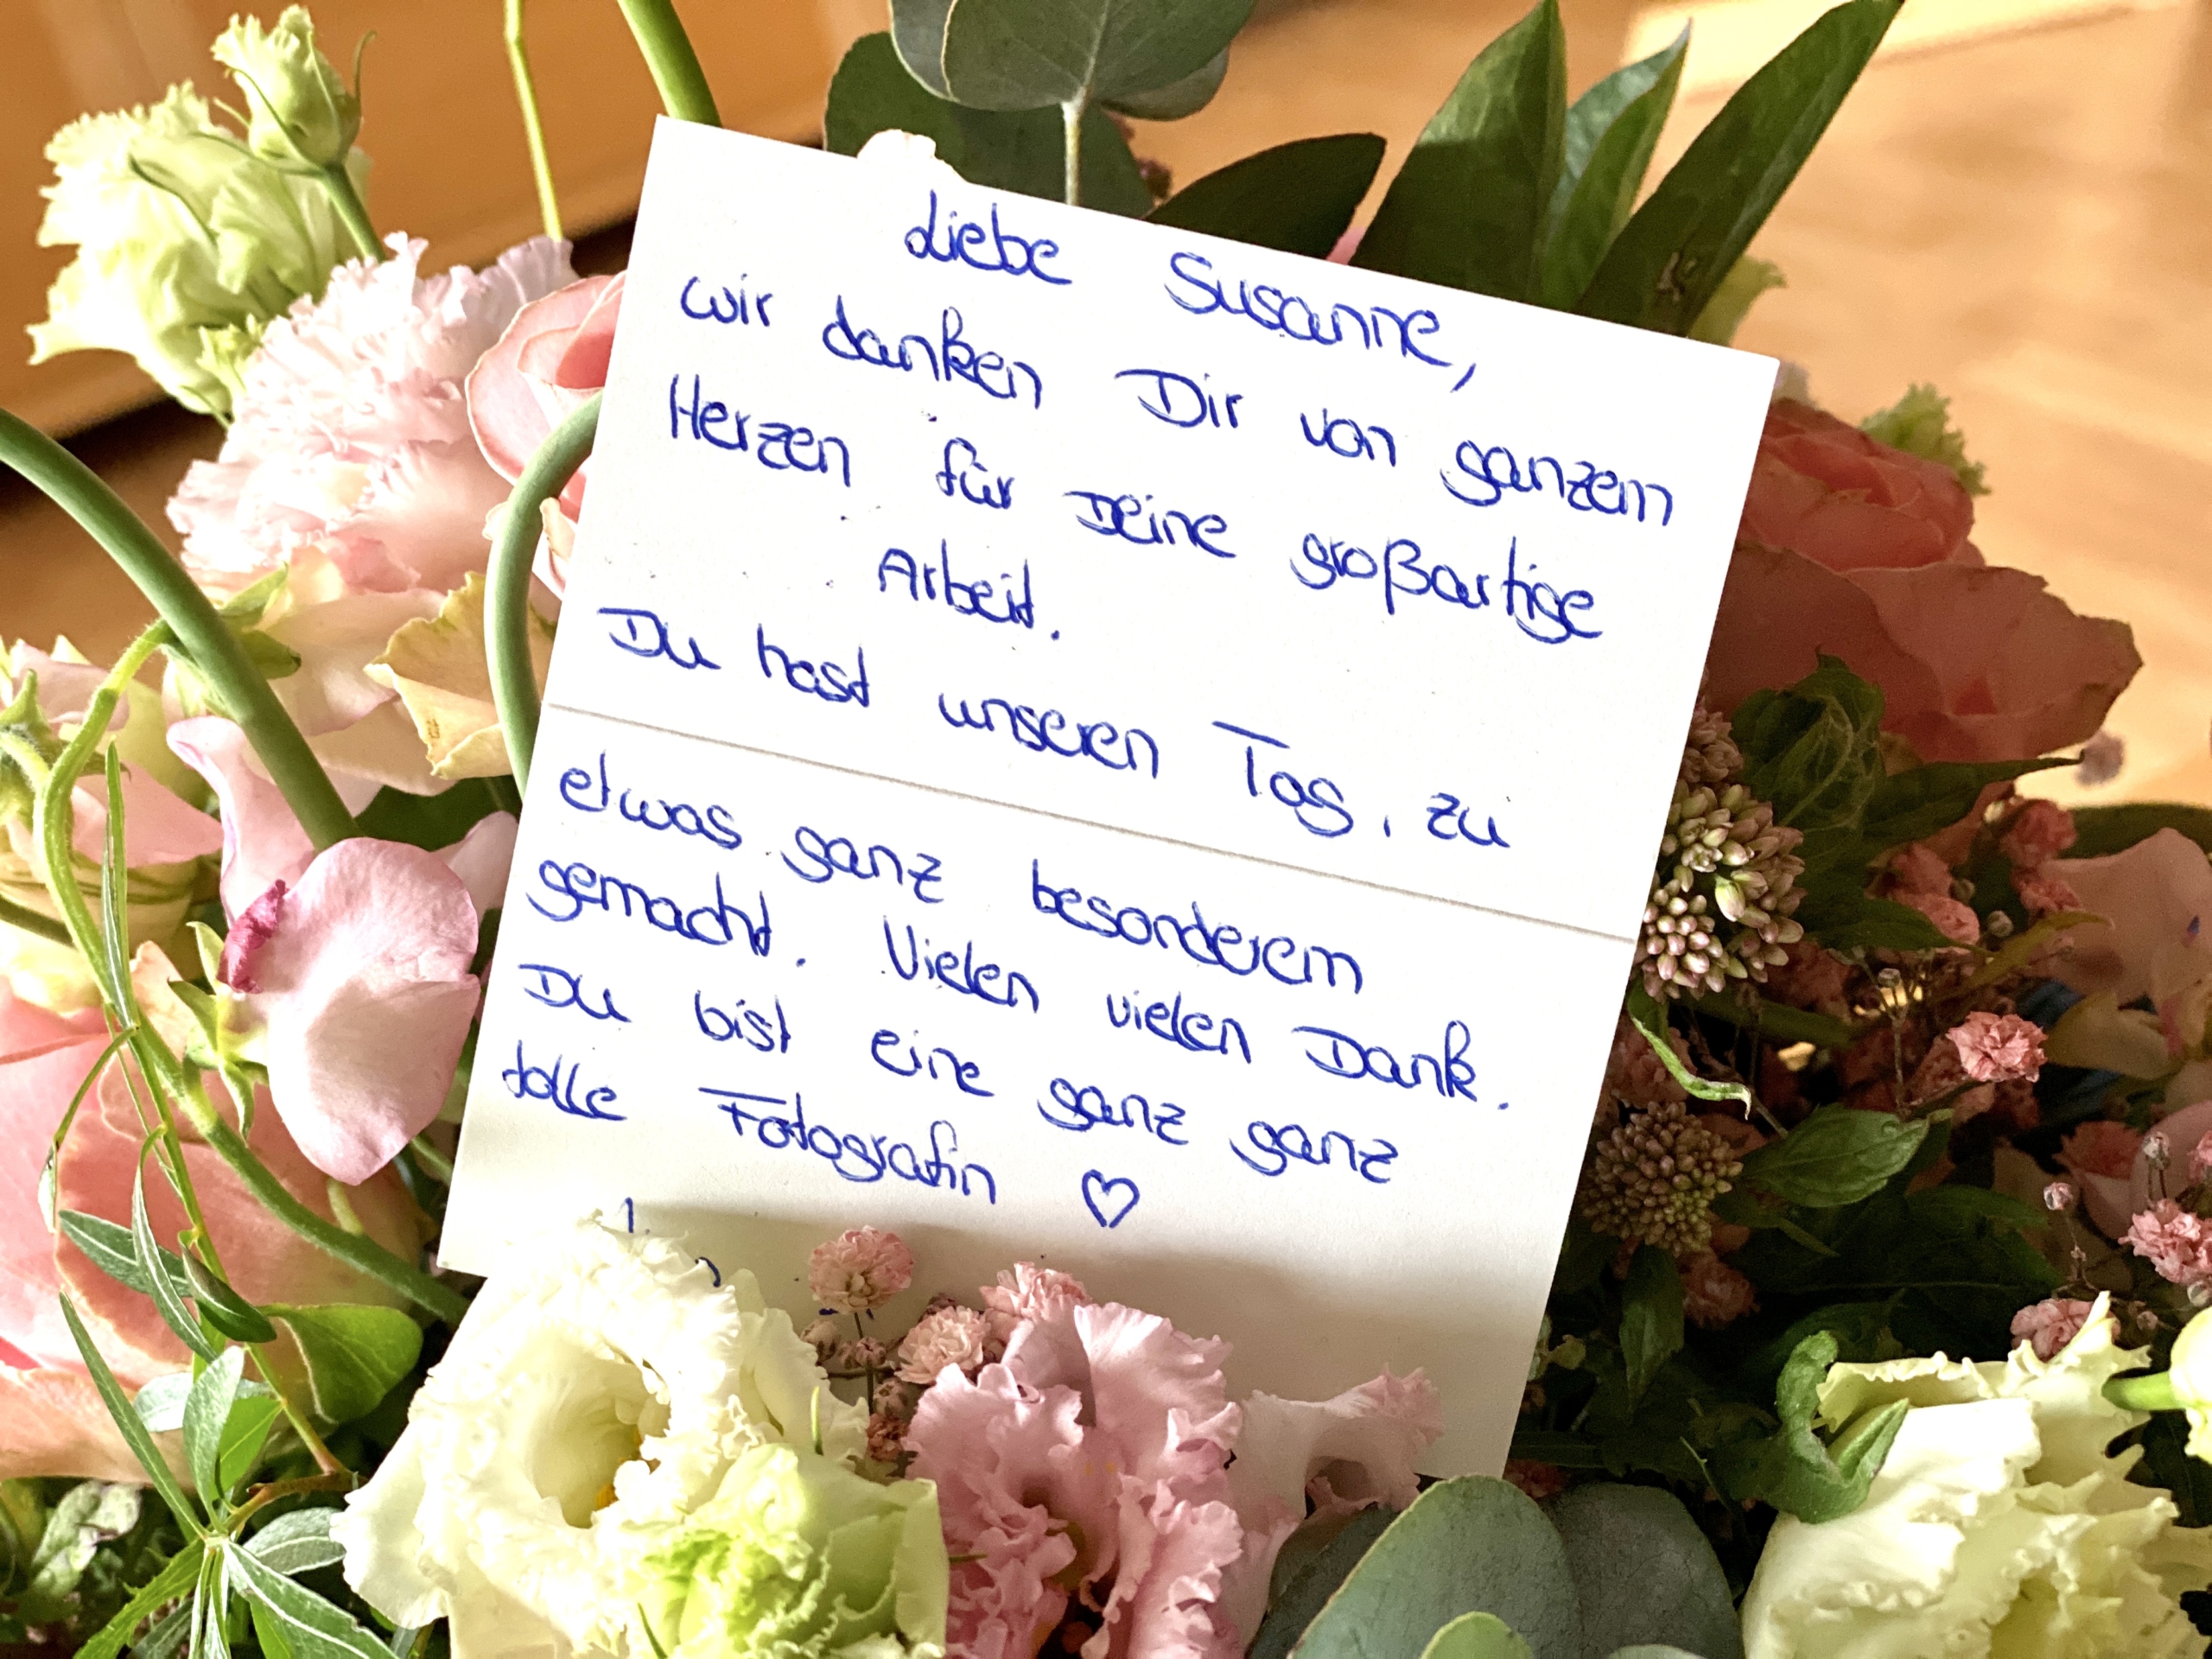 Liebe Susanne,
wir danken Dir von ganzem
Herzen für Deine großartige
Arbeit.
Du hast unseren Tag, zu
etwas ganz besonderem
gemacht. Vielen vielen Dank.
Du bist eine ganz ganz
tolle Fotografin ♡